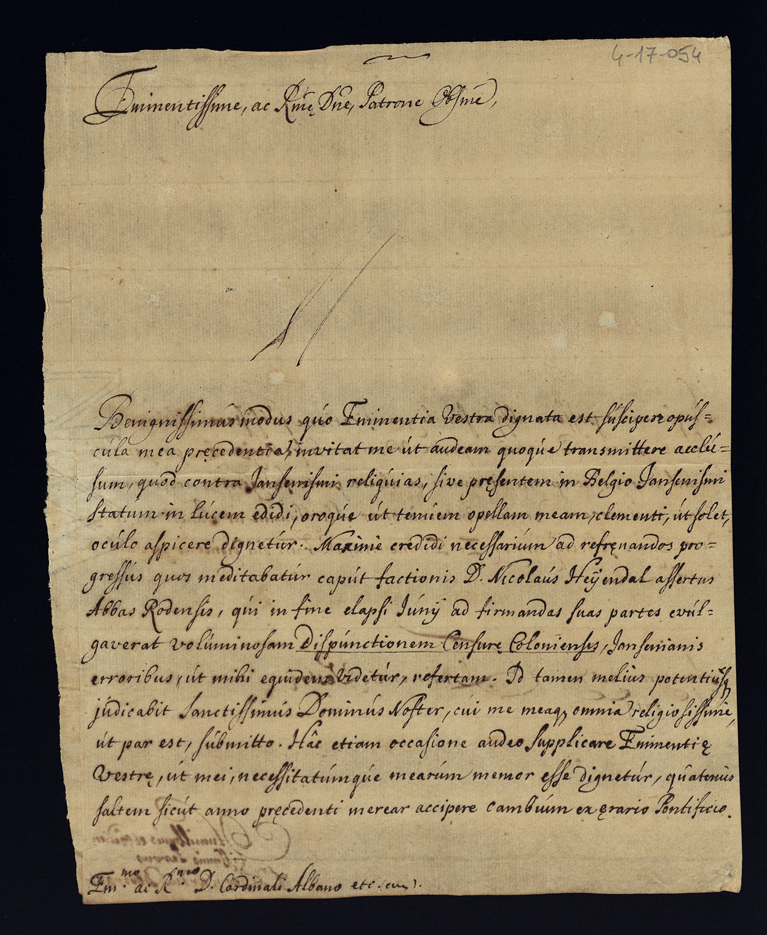 4-17-054
Eminentissime, ac Rme Dne, Patrone Obsme,
Benignissimus modus quo Eminentia Vestra dignata est suscipere opus=
cula mea precedentia, invitat me ut audeam quoque transmittere acclu=
sum, quod contra Jansenismi reliquias, sive pręsentem in Belgio Jansenismi
statum in lucem edidi, oroque ut tenuem opellam meam, clementi, ut solet,
oculo aspicere dignetur. Maxime credidi necessarium ad refręnandos pro=
gressus quos meditabatur caput factionis D. Nicolaus Heÿendal assertus
Abbas Rodensis, qui in fine elapsi Junÿ ad firmandas suas partes evul=
gaverat voluminosam Dispunctionem Censurę Coloniensis, Jansenianis
erroribus, ut mihi equidem videtur, refertam. Id tamen melius potentiusq
judicabit Sanctissimus Dominus Noster, cui me meaq omnia religiosissime,
ut par est, submitto. Hâc etiam occasione audeo supplicare Eminentię
Vestrę, ut mei, necessitatumque mearum memor esse dignetur, quatenus
saltem sicut anno pręcedenti merear accipere cambium ex ęrario Pontificio.
Emmo ac Rmo D. Cardinali Albano etc.